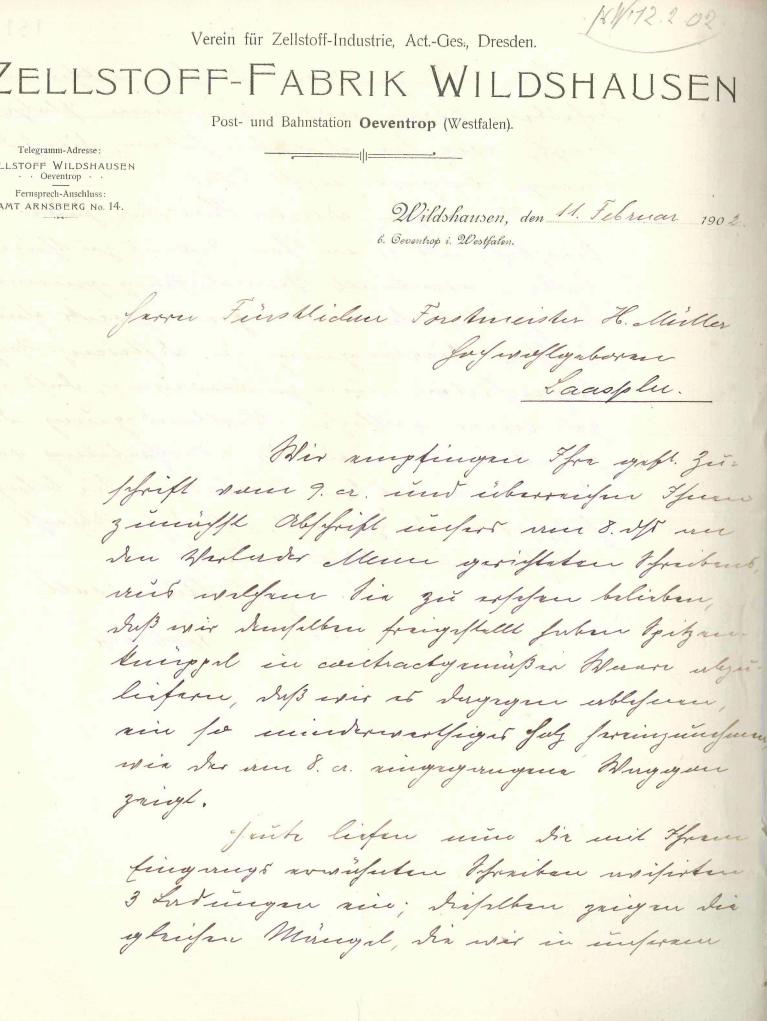 KW 12.2.02
Verein für Zellstoff-Industrie, Act.-Ges., Dresden.
ZELLSTOFF-FABRIK WILDSHAUSEN
Post- und Bahnstation Oeventrop (Westfalen).
Telegramm-Adresse:
LLSTOFF WILDSHAUSEN
Oeventrop
Fernsprech-Anschluss:
AMT ARNSBERG No. 14.
Wildshausen, den 11. Februar 1902.
b. Oeventrop i. Westfalen.
Herrn Fürstlichen Forstmeister H. Müller
Hochwohlgeboren
Laasphe.
Wir empfingen Ihre gefl. Zu-
schrift vom 9. cr. und überreichen Ihnen
zunächst Abschrift unsers am 8. dss an
den Verlader Menn gerichteten Schreibens,
aus welchem Sie zu ersehen belieben,
daß wir demselben freigestellt haben Spitzen-
knüppel in contractgemäßer Waare abzu-
liefern, daß wir es dagegen ablehnen,
ein so minderwerthiges Holz hereinzunehmen,
wie der am 8. cr. eingegangene Waggon
zeigt.
Heute liefen nun die mit Ihrem
Eingangs erwähnten Schreiben avisirten
3 Ladungen ein; dieselben zeigen die
gleichen Mängel, die wir in unserem